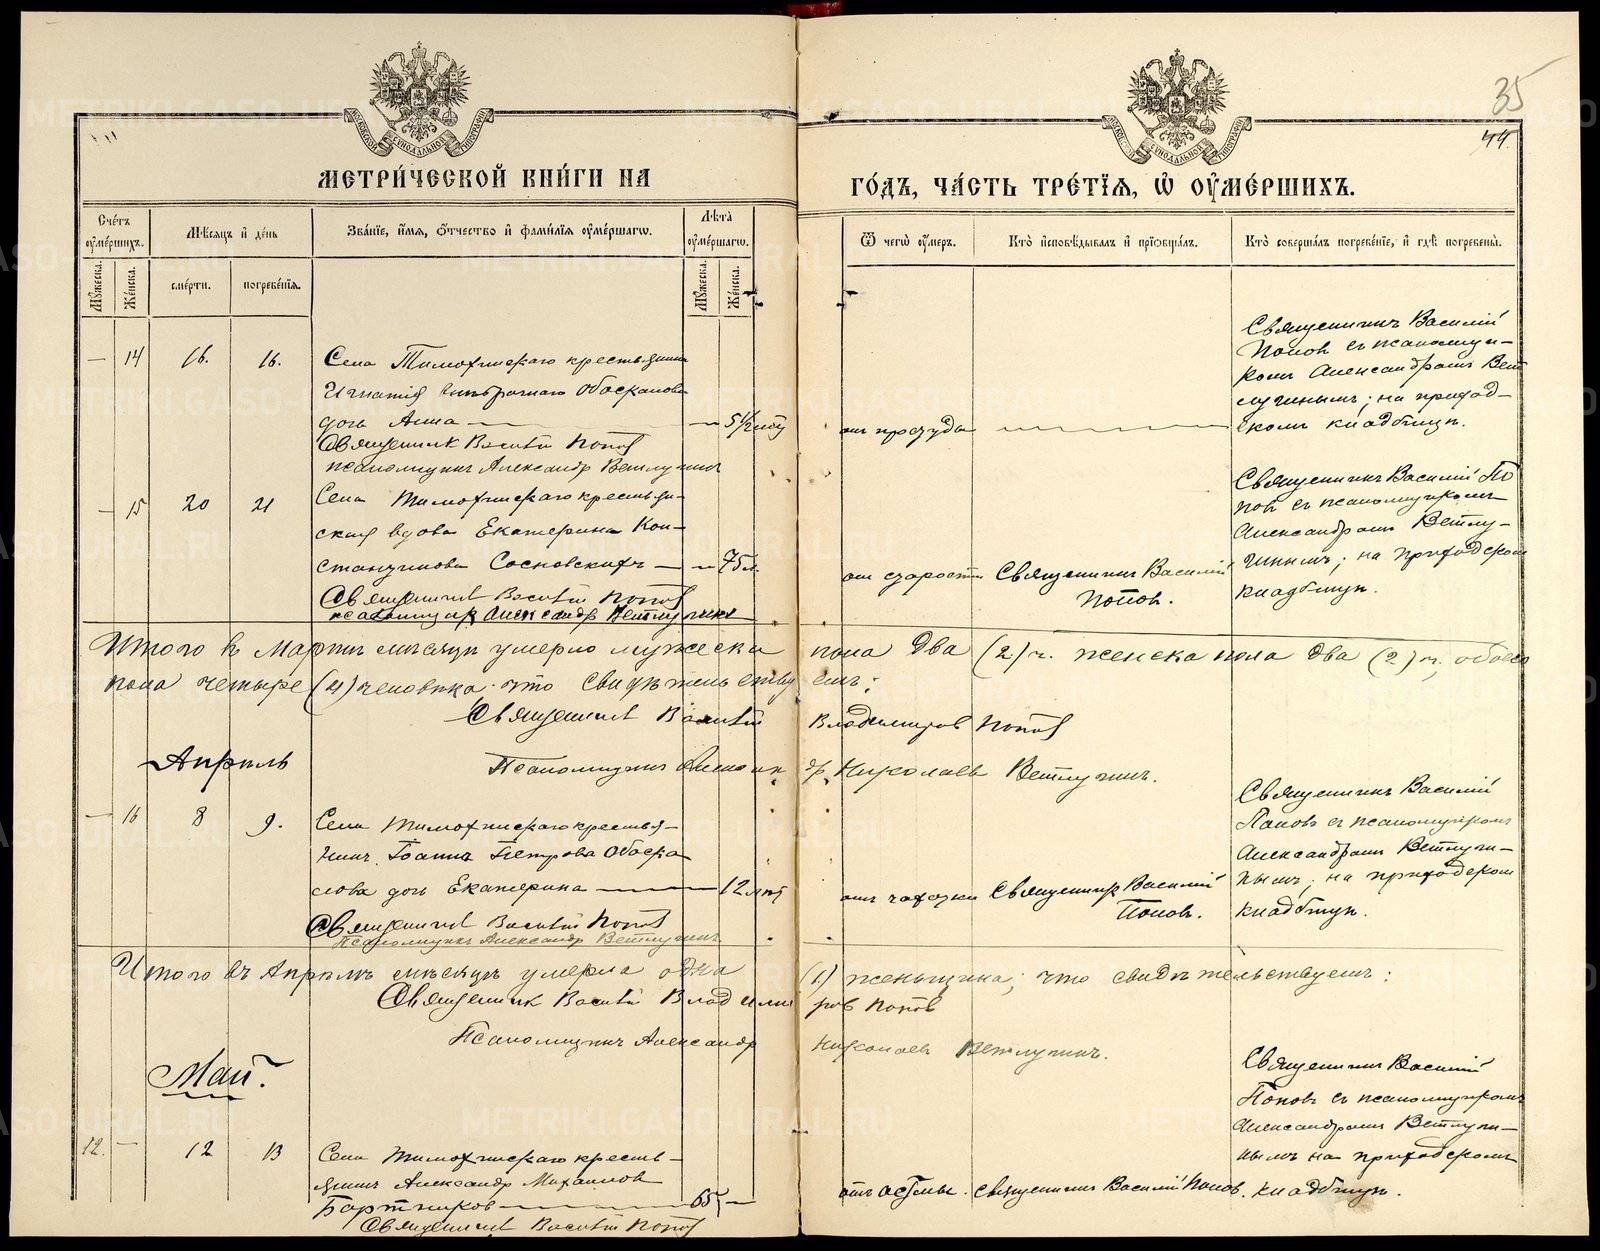 35
44
МОСКОВСКОЙ СѴНОДАЛЬНОЙ ТИПОГРАФІИ
МОСКОВСКОЙ СѴНОДАЛЬНОЙ ТИПОГРАФІИ
МЕТРИ́ЧЕСКОЙ КНИ́ГИ НА
ГО́ДЪ, ЧА́СТЬ ТРЕ́ТІЯ, Ѡ҆ ОУ҆МЕ́РШИХЪ.
Сче́тъ оу҆ме́ршихъ.
Мꙋ́жеска.
Же́нска.
Мѣ́сяцъ и҆ де́нь
сме́рти.
погребе́нїѧ.
Зва́нїе, и҆́мѧ, ѻ҆́тчество и҆ фами́лїѧ оу҆ме́ршагѡ.
Лѣ́та оу҆ме́ршагѡ.
Мꙋ́жеска.
Же́нска.
Ѿ чегѡ̀ оу҆́меръ.
Кто̀ и҆сповѣ́дывалъ и҆ прїѡбща́лъ.
Кто̀ соверша́лъ погребе́нїе, и҆ гдѣ̀ погребены̀.
— 14 16. 16.
Села Тимохинскаго крестьянина
Игнатія Обоскалова
дочь Анна — — 5½
Священникъ Василій Поповъ
псаломщикъ Александр Ветлугинъ
отъ простуды
Священникъ Василій
Поповъ съ псаломщи-
комъ Александромъ Вет
лугинымъ; на приход-
скомъ кладбищѣ.
— 15 20 21
Села Тимохинскаго крестьян-
ская вдова Екатерина Кон-
стантинова Сосновскихъ — — 75 л.
Священникъ Василій Поповъ
псаломщикъ Александр Ветлугинъ
отъ старости
Священникъ Василій
Поповъ.
Священникъ Василій По
повъ съ псаломщикомъ
Александромъ Ветлу-
гинымъ; на приходском
кладбищѣ.
Итого въ Мартѣ мѣсяцѣ умерло мужеска пола два (2) ч. женска пола два (2) ч., обоего
пола четыре (4) человѣка. что свидѣтельствуемъ:
Священникъ Василій Владиміровъ Поповъ
Псаломщикъ Александръ Николаевъ Ветлугинъ.
Апрѣль
— 16 8 9.
Села Тимохинскаго крестья-
нина Іоанна Петрова Обоска-
лова дочь Екатерина — 12 лѣтъ
Священникъ Василій Поповъ
Псаломщикъ Александр Ветлугинъ
отъ чахотки
Священникъ Василій
Поповъ.
Священникъ Василій
Поповъ съ псаломщикомъ
Александромъ Ветлуги-
нымъ; на приходском
кладбищѣ.
Итого въ Апрѣлѣ мѣсяцѣ умерла одна (1) женьщина; что свидѣтельствуемъ:
Священникъ Василій Владиміровъ Поповъ
Псаломщикъ Александр Николаевъ Ветлугинъ.
Май.
12. — 12 13
Села Тимохинскаго кресть-
янинъ Александр Михаиловъ
Бортниковъ — 65 —
Священникъ Василій Поповъ
отъ астмы.
Священникъ Василій Поповъ.
Священникъ Василій
Поповъ съ псаломщикомъ
Александромъ Ветлуги-
нымъ на приходскомъ
кладбищѣ.